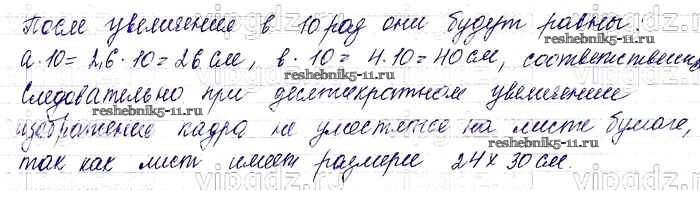 После увеличения в 10 раз они будут равны:
а·10 = 2,6·10 = 26 см, в·10 = 4·10 = 40 см, соответственно
reshebnik5-11.ru
Следовательно при десятикратном увеличении
изображение кадра не уместится на листе бумаги,
reshebnik5-11.ru
так как лист имеет размеры 24 х 30 см.
reshebnik5-11.ru
vipgdz.ru
vipgdz.ru